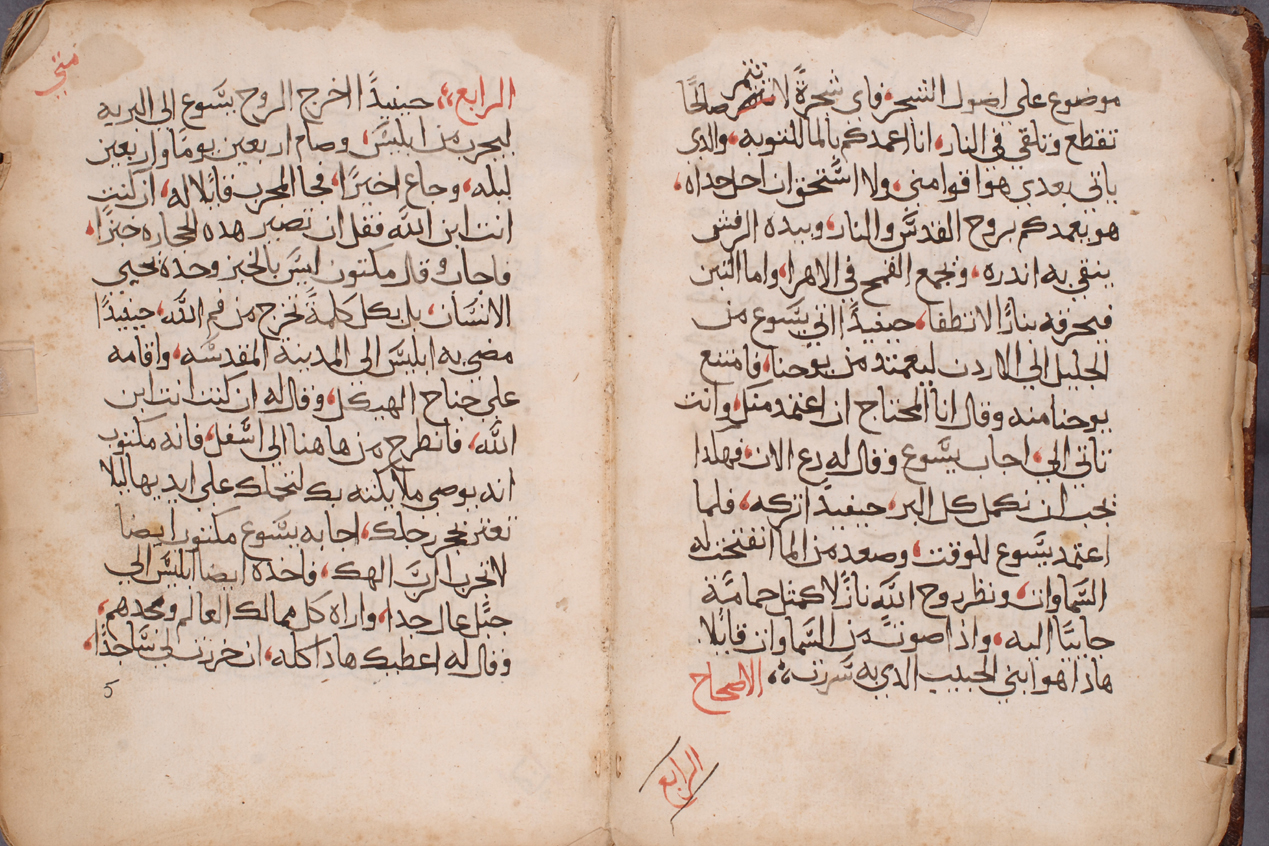 موضوع على اصول الشجر، فاى شجرةً لا تثمر صالحًا
تقطع وتلقى في النار، انا اعمدكم بالما للتوبه، والدى
ياتى بعدي هوا قوا منى، ولا استحق ان احل حداه،
هو يعمدكم بروح القدس والنار، وبيده الرفش
ينقي به اندره، ويجمع القمح في الاهرا، واما التبن
فيحرقه بنارًا لا تطفا، حينيدًا اتي يسوع من
الجليل الي الاردن ليعتمد من يوحنا، فامتنع
يوحنا منه وقال انا المحتاج ان اعتمد منك، وانت
تاتى الي، اجاب يسوع وقال له دع الان، فهكدا
يجب ان نكمل كل البر، حينيدًا تركه، فلما
اعتمد يسوع للوقت، وصعد من الما انفتحت له
السماوات، ونظر روح الله نازلا كمثل حمامة
جايتًا اليه، وادا صوت من السماوات قايلا
هادا هو ابني الحبيب الدي به سررت، الاصحاح
الرابع
متي
الرابع، حينيدًا اخرج الروح يسوع الى البريه
ليجرب من ابليس، وصام اربعين يومًا واربعين
ليله، وجاع اخيرًا، فجا المجرب قايلا له، ان كنت
انت ابن الله فقل ان تصير هده الحجاره خبزًا،
فاجاب وقال مكتوب ليس بالخبز وحده يحيي
الانسان، بل بكل كلمةً تخرج من فم الله، حينيدًا
مضى به ابليس الى المدينة المقدسه، واقامه
علي جناح الهيكل، وقال له ان كنت انت ابن
الله، فانطرح من هاهنا الي اسفل، فانه مكتوب
انه يوصى ملايكته بك لتحملك على ايديها ليلا
تعتر بحجر رجلك، اجابه يسوع مكتوب ايضا
لا تجرب الرب الهك، فاخده ايضا ابليس الي
جبل عال جدا، واراه كل ممالك العالم ومجدهم،
وقال له اعطيك هادا كله، ان خررت لي ساجدًا،
5